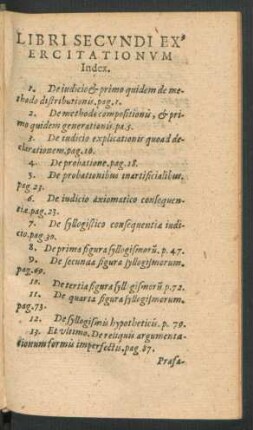 LIBRI SECVNDI EX
ERCITATIONVM
Index.
1. De iudicio & primo quidem de me-
thodo distributionis. pag. 1.
2. De methodi compositionis, & pri
mo quidem generationis. pa. 5.
3. De iudicio explicationis quoad de-
clarationem. pag. 10.
4. De probatione. pag. 18.
5. De probationibus inartificialibus.
pag 23.
6. De iudicio axiomatico consequen-
tiæ. pag. 23.
7. De syllogistico consequentia iudi-
cio. pag. 30.
8. De prima figura syllogismorũ. p. 47.
9. De secunda figura syllogismorum.
pag. 60.
10. De tertia figura syllogismorũ p. 72.
11. De quarta figura syllogismorum.
pag. 73.
12. De syllogismis hypotheticis. p. 78.
13. Et vltimo. De reliquis argumenta-
tionum formis imperfectis. pag. 87.
Præfa-